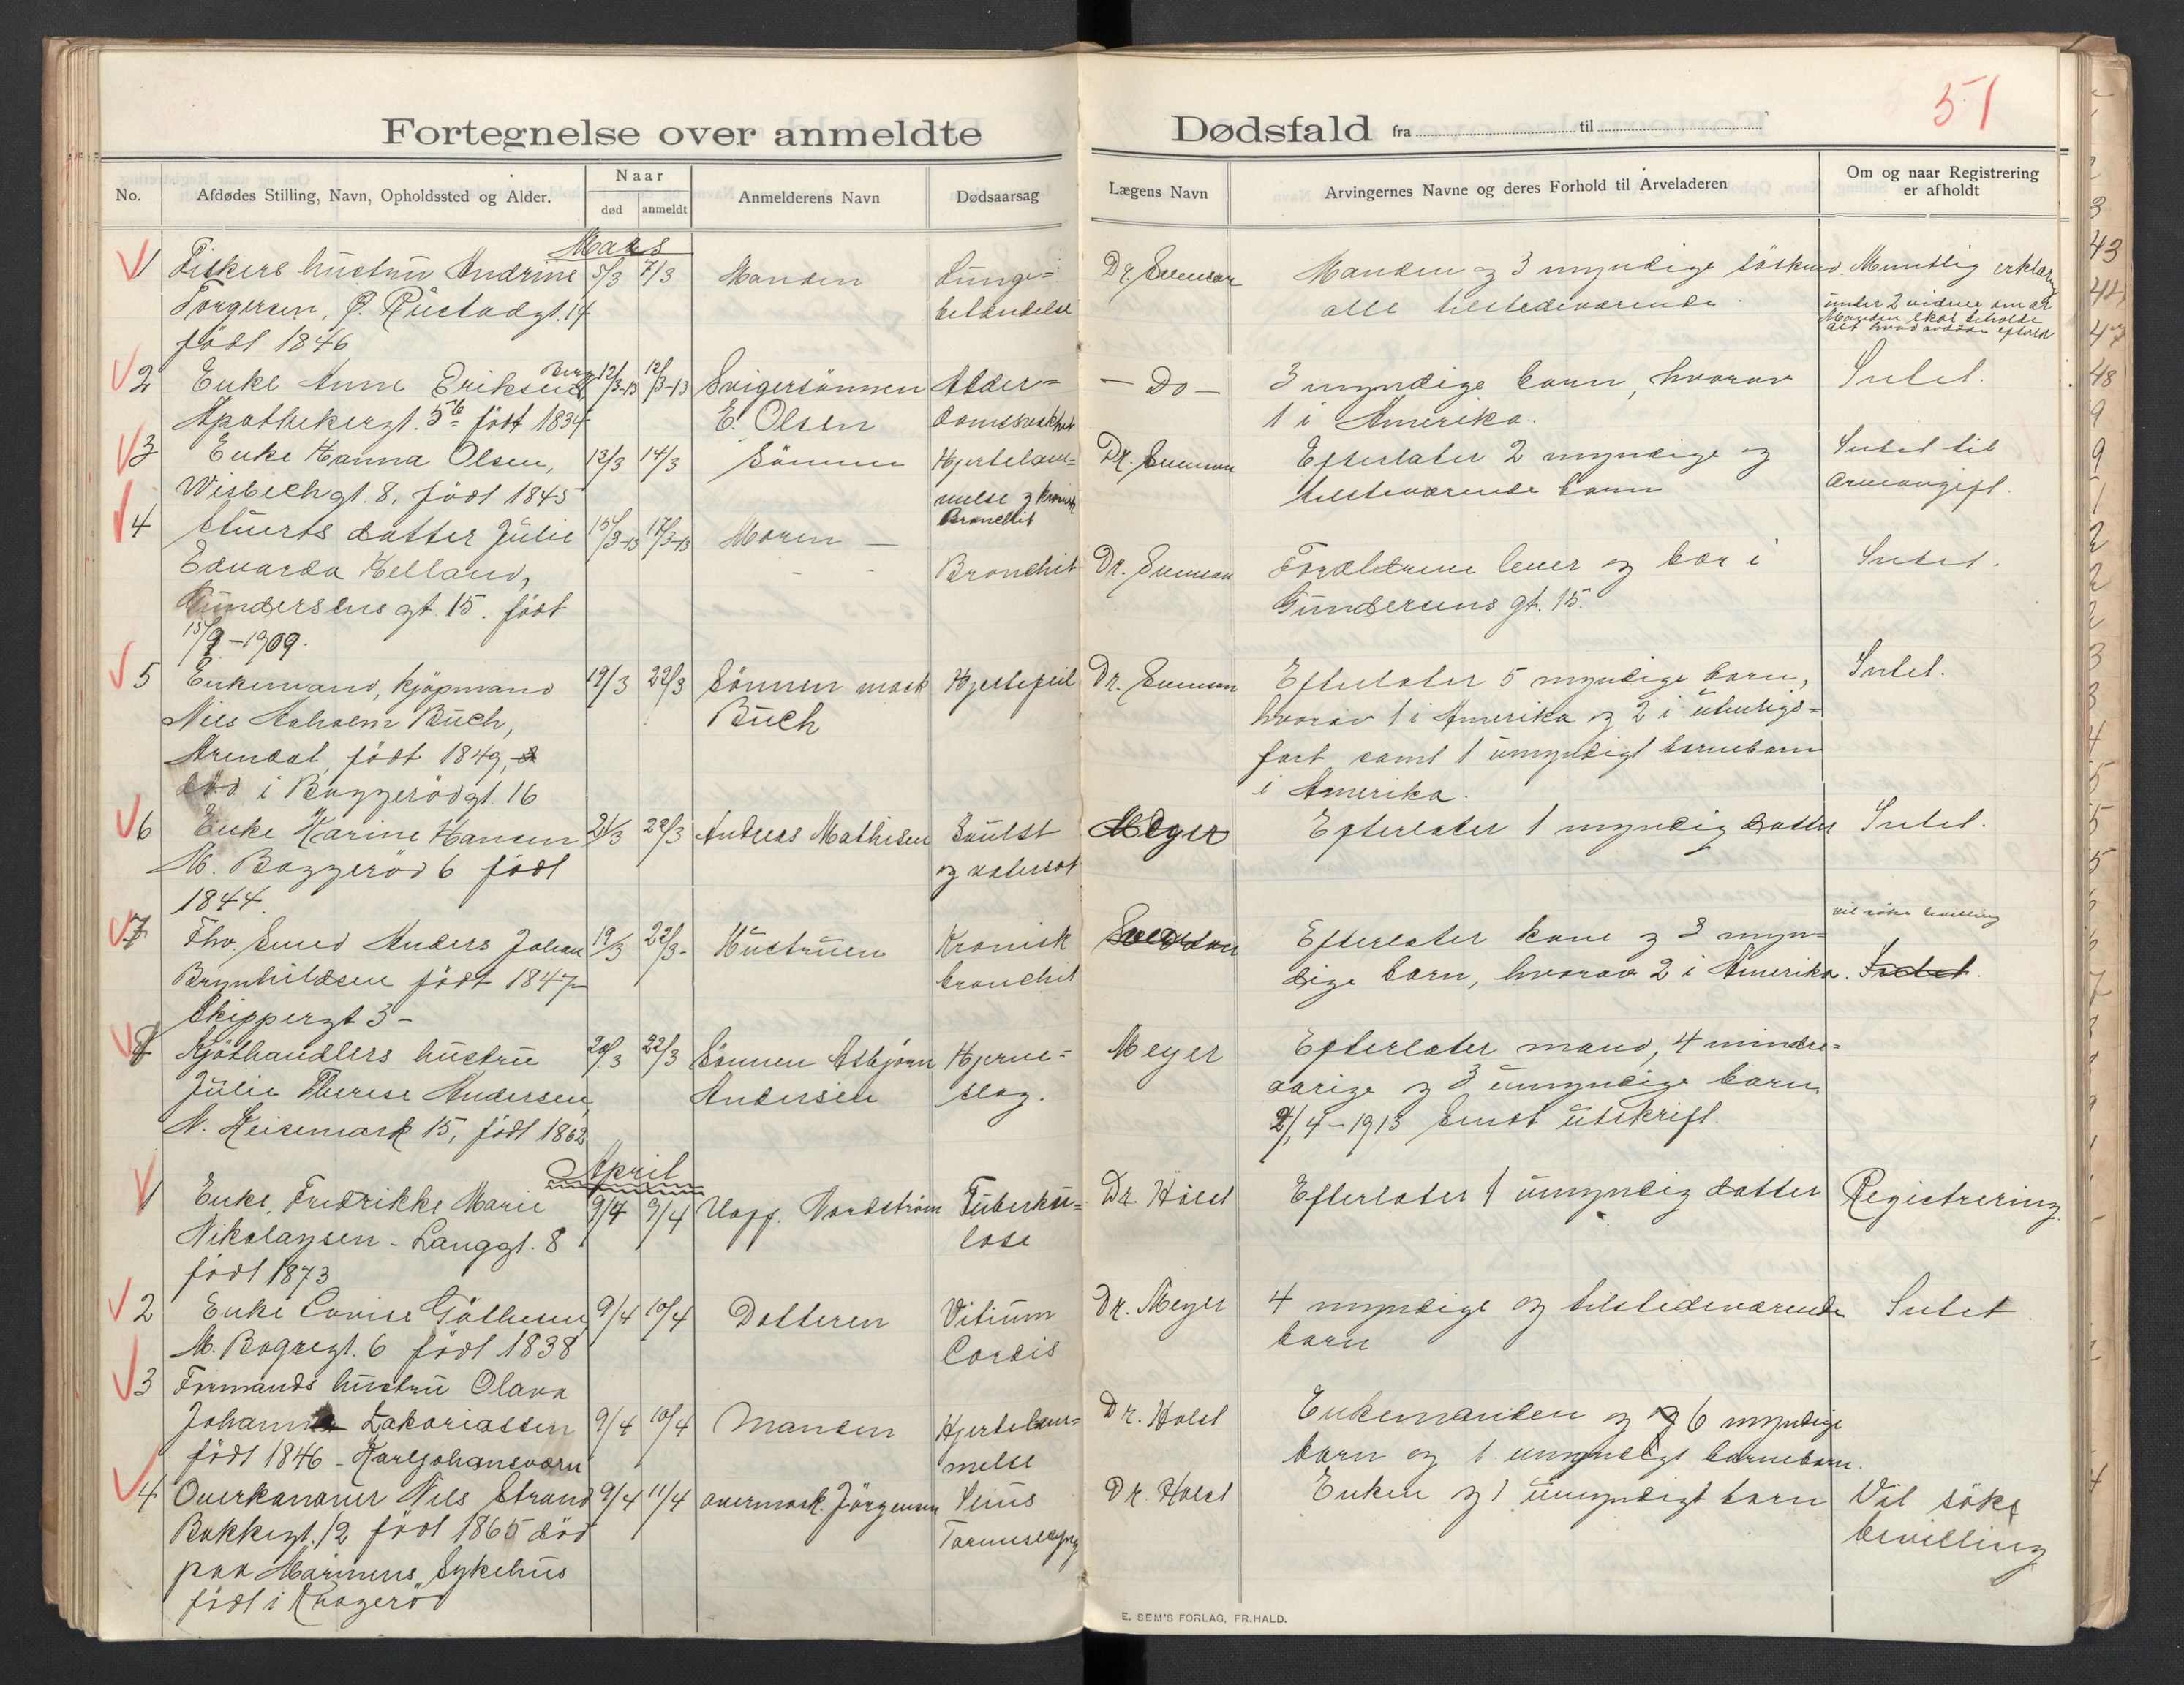 51
Fortegnelse over anmeldte Dødsfald fra til
No. Afdødes Stilling, Navn, Opholdssted og Alder. Naar død anmeldt Anmelderens Navn Dødsaarsag Lægens Navn Arvingernes Navne og deres Forhold til Arveladeren Om og naar Registrering er afholdt
Mars
1 Fiskers hustru Andrine 5/3 7/3 Manden Lunge= Manden og 3 myndige söskend. Muntlig erklæring
Torgersen, betændelse alle tilstedeværende. under 2 vidner om at
født 1846 Manden skal beholde
2 Enke Anne Eriksen Berg 12/3-13 12/3-13 Svigersönnen Alder= - Do - 3 myndige barn, hvorav Intet.
Apothekergt. 5b født 1834 E. Olsen domssvakhet 1 i Amerika.
3 Enke Hanna Olsen, 13/3 14/3 Sönnen Hjertelam= Dr. Efterlater 2 myndige og Intet til
Wisbechgt. 8, født 1845 melse og kronisk Bronchit tilstedeværende barn arveavgift.
4 datter Julie 15/3-13 17/3-13 Moren -
Edvarda Helland, Bronchit Dr. Forældrene lever og bor i Intet.
Gundersens gt. 15. født Gundersens gt. 15.
15/9-1909.
5 Enkemand, kjøpmand 19/3 22/3 Sönnen mask Hjertefeil Dr. Efterlater 5 myndige barn, Intet.
Nils Buch, Buch hvorav 1 i Amerika og 2 i utenrigs=
Arendal, født 1849, fart samt 1 umyndigt barnebarn
död i Baggerödgt. 16 i Amerika.
6 Enke Karine Hansen 21/3 22/3 Andreas Mathisen Svulst Meyer Efterlater 1 myndig datter Intet.
M. Baggeröd 6 født og vatersot
1844.
vil söke bevilling
7 Fhv. Smed Anders Johan 19/3 22/3- Hustruen Kronisk Efterlater kone og 3 myn=
Brynhildsen født 1847 bronchit dige barn, hvorav 2 i Amerika. Intet.
Skippergt 3-
8 Kjöthandlers hustru 20/3 22/3 Sönnen Asbjörn Hjerne= Meyer Efterlater mand, 4 mindre=
Julie Therese Andersen Andersen slag. aarige og 3 umyndige barn
N. Keisemark 15, født 1862 2/4-1913 Sendt utskrift.
April
1 Enke, Fredrikke Marie 9/4 9/4 Nordström Tuberku= Dr. Holst Efterlater 1 umyndig datter Registrering
Nikolaysen - Langgt. 8 lose
født 1873
2 Enke Lovise Göthesen 9/4 10/4 Datteren Vitium Dr. Meyer 4 myndige og tilstedeværende Intet
M. 6 født 1838 Cordis barn
3 Formands hustru Olava
Zakariassen 9/4 10/4 Manden Hjertelam= Dr. Holst Enkemanden og 6 myndige
født 1846 - Karljohansværn melse barn og 1 umyndigt barnebarn.
4 Overkanoner Nils Strand 9/4 11/4 overmask. Jörgensen Dr. Holst Enken og 1 umyndigt barn Vil söke
Bakkegt. 12 født 1865 död Tarmslyng bevilling
paa Marinens Sykehus
født i Kragerö
E. SEM'S FORLAG, FR.HALD.